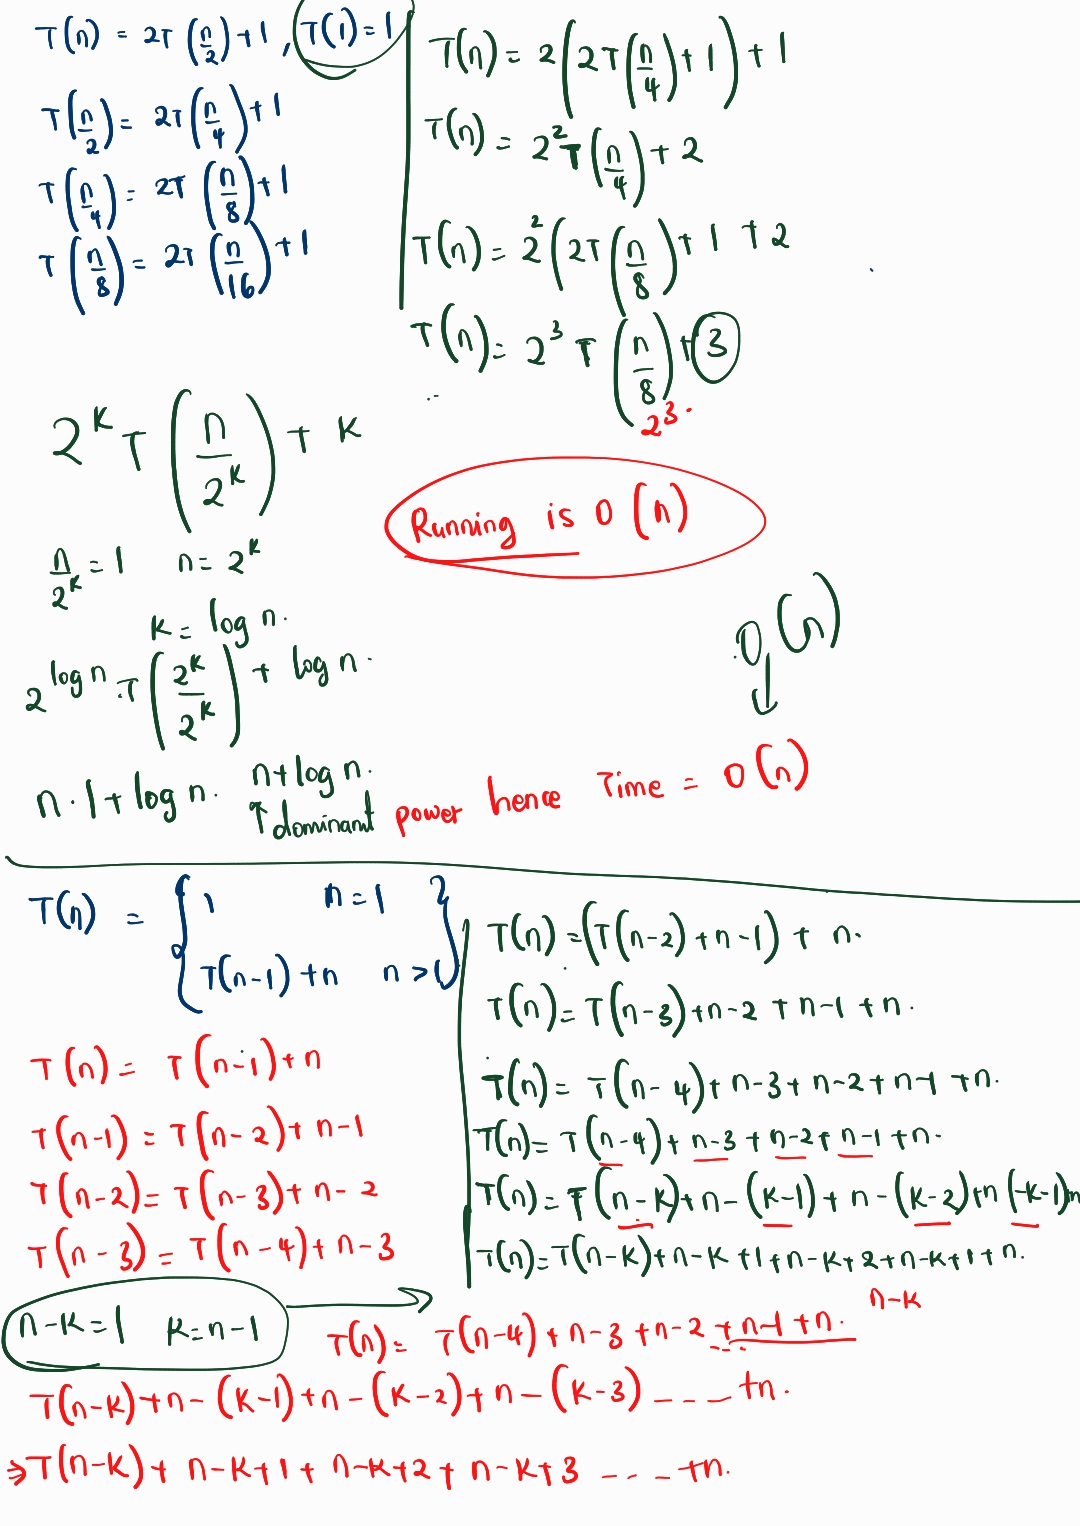 T(n) = 2T(n/2) + 1, T(1) = 1
T(n/2) = 2T(n/4) + 1
T(n/4) = 2T(n/8) + 1
T(n/8) = 2T(n/16) + 1
T(n) = 2(2T(n/4) + 1) + 1
T(n) = 2²T(n/4) + 2
T(n) = 2²(2T(n/8) + 1 + 2
T(n) = 2³ T(n/8) + 3
2³.
2^K T(n/2^K) + K
Running is O(n)
n/2^K = 1 n = 2^K
K = log n.
2^log n . T(2^K/2^K) + log n.
O(n)
↓
n·1 + log n. n + log n.
↑ dominant power hence Time = O(n)
T(n) = { 1 n = 1
T(n-1) + n n > 1 }
T(n) = T(n-1) + n
T(n-1) = T(n-2) + n-1
T(n-2) = T(n-3) + n-2
T(n-3) = T(n-4) + n-3
T(n) = (T(n-2) + n-1) + n.
T(n) = T(n-3) + n-2 + n-1 + n.
T(n) = T(n-4) + n-3 + n-2 + n-1 + n.
T(n) = T(n-4) + n-3 + n-2 + n-1 + n.
T(n) = T(n-K) + n-(K-1) + n-(K-2) + n(-K-1) n
T(n) = T(n-K) + n-K+1 + n-K+2 + n-K+1 + n.
n-K
n-K = 1 K = n-1 →
T(n) = T(n-4) + n-3 + n-2 ... + n-1 + n.
T(n-K) + n-(K-1) + n-(K-2) + n-(K-3) ---- + n.
⇒ T(n-K) + n-K+1 + n-K+2 + n-K+3 ---- + n.